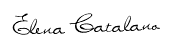 Elena Catalano